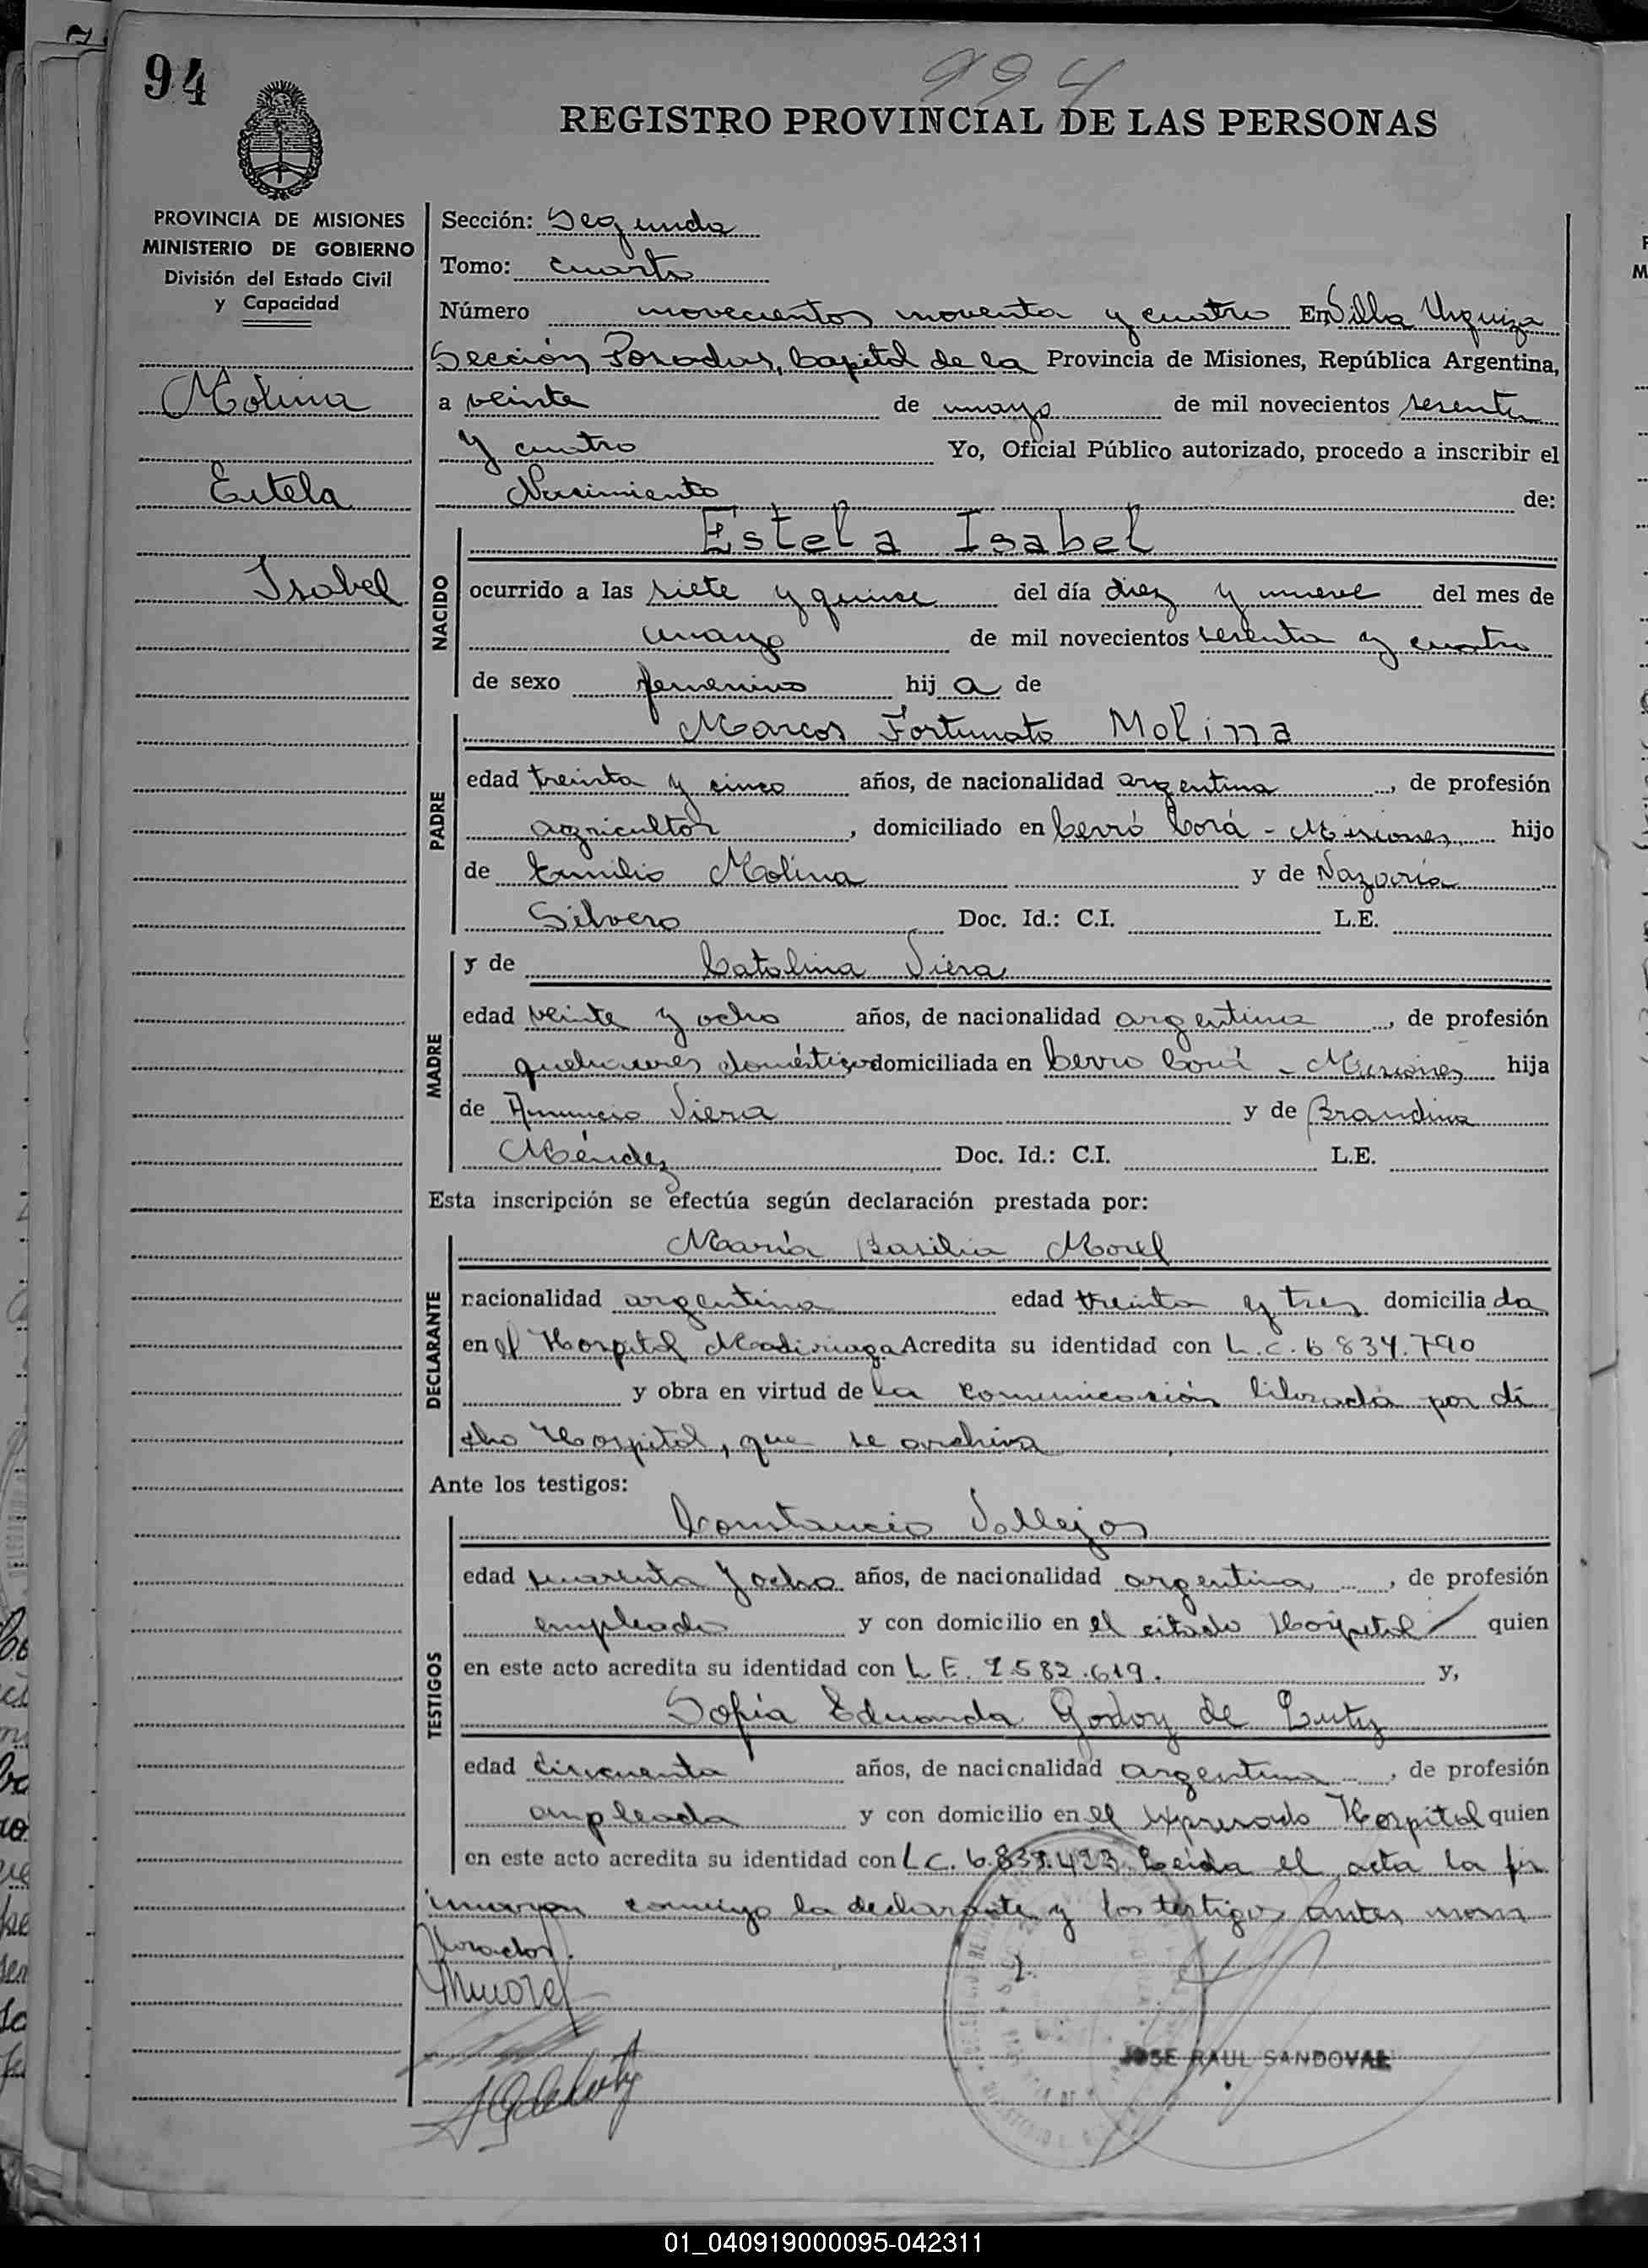 94
994
REGISTRO PROVINCIAL DE LAS PERSONAS
PROVINCIA DE MISIONES
MINISTERIO DE GOBIERNO
División del Estado Civil
y Capacidad
Molina
Estela
Isabel
Sección: Segunda
Tomo: cuarto
Número novecientos noventa y cuatro En Villa Urquiza
Sección Posadas, Capital de la Provincia de Misiones, República Argentina,
a veinte de mayo de mil novecientos sesenta
y cuatro Yo, Oficial Público autorizado, procedo a inscribir el
Nacimiento de:
NACIDO
Estela Isabel
ocurrido a las siete y quince del día diez y nueve del mes de
mayo de mil novecientos sesenta y cuatro
de sexo femenino hij a de
PADRE
Marcos Fortunato Molina
edad treinta y cinco años, de nacionalidad argentina, de profesión
agricultor, domiciliado en Cerró Corá - Misiones hijo
de Emilio Molina y de Nazaria
Silvero Doc. Id.: C.I. L.E.
MADRE
y de Catalina Viera
edad veinte y ocho años, de nacionalidad argentina, de profesión
quehaceres domésticos domiciliada en Cerro Corá - Misiones hija
de Anuncio Viera y de Brandina
Méndez Doc. Id.: C.I. L.E.
Esta inscripción se efectúa según declaración prestada por:
DECLARANTE
María Basilia Morel
nacionalidad argentina edad treinta y tres domicilia da
en el Hospital Madariaga Acredita su identidad con L.C. 6.834.790
y obra en virtud de la comunicación librada por di
cho Hospital, que se archiva
Ante los testigos:
TESTIGOS
Constancio Vallejos
edad cuarenta y ocho años, de nacionalidad argentina, de profesión
empleado y con domicilio en el citado Hospital quien
en este acto acredita su identidad con L.E. 2.582.619. y,
Sofía Eduarda Godoy de Lutz
edad cincuenta años, de nacionalidad argentina, de profesión
empleada y con domicilio en el expresado Hospital quien
en este acto acredita su identidad con L.C. 6.839.493. Leída el acta la fir
maron conmigo la declarante y los testigos antes nom
brados.
MMorel
JOSE RAUL SANDOVAL
01_040919000095-042311